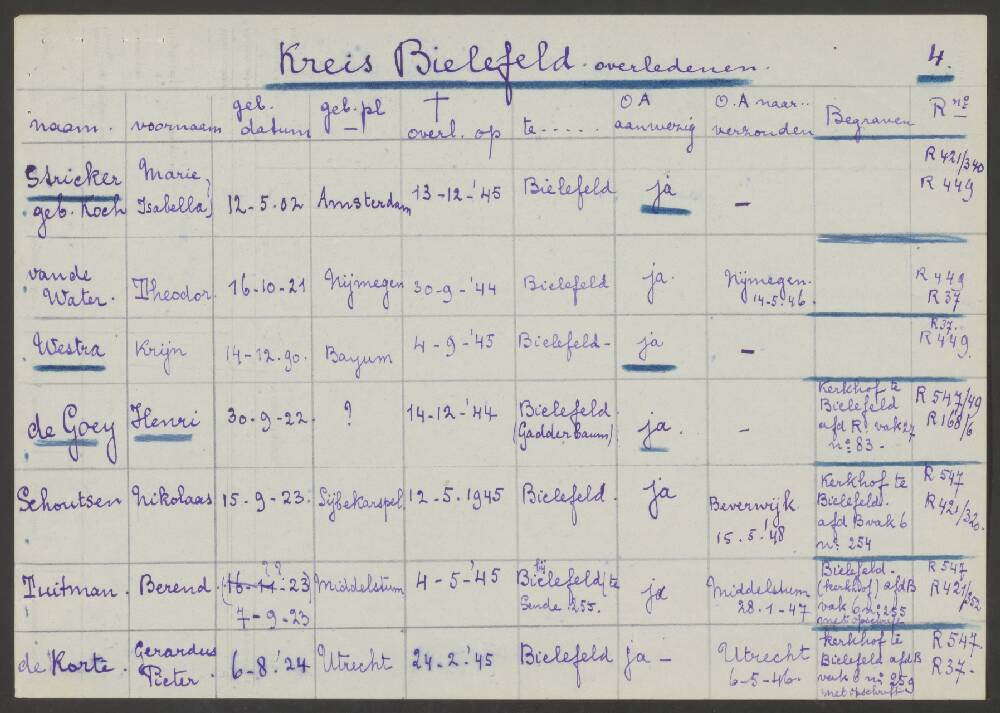 Kreis Bielefeld. overledenen. 4.
naam. voornaem geb. datum geb. pl † overl. op te ..... O A aanwezig O. A naar.. verzonden Begraven R no
Stricker geb. Koch Marie, Isabella 12-5.02 Amsterdam 13-12-'45 Bielefeld ja – R 421/340 R 449
van de Water. Theodor. 16-10-21 Nijmegen 30-9-'44 Bielefeld ja. Nijmegen. 14-5-'46. R 449 R 37
Westra Krijn 14-12.90. Bayum 4-9-'45 Bielefeld- ja – R 37. R 449.
de Goey Henri 30.9-22. ? 14-12-'44 Bielefeld. (Gadderbaum) ja. – Kerkhof te Bielefeld afd R. vak 27 no: 83- R 547/49 R 168/6
Schoutsen Nikolaas 15-9-23. Sijbekarspel 12-5.1945 Bielefeld. ja Beverwijk. 15.5.'48 Kerkhof te Bielefeld. afd B vak 6 no: 254 R 547 R 421/320.
Tuitman. Berend. (16-11-23) ?? 7-9-23 Middelstum 4-5-'45 bij Bielefeld/te Sende 255. ja Middelstum 28.1-47 Bielefeld. (kerkhof) afd B vak 6 no 255 met opschrift R 547 R 421/352
de Korte. Gerardus Pieter. 6-8.'24 Utrecht 24-2.'45 Bielefeld ja - Utrecht 6-5-46. Kerkhof te Bielefeld afd B vak 6 no 259 met opschrift R 547. R 37-